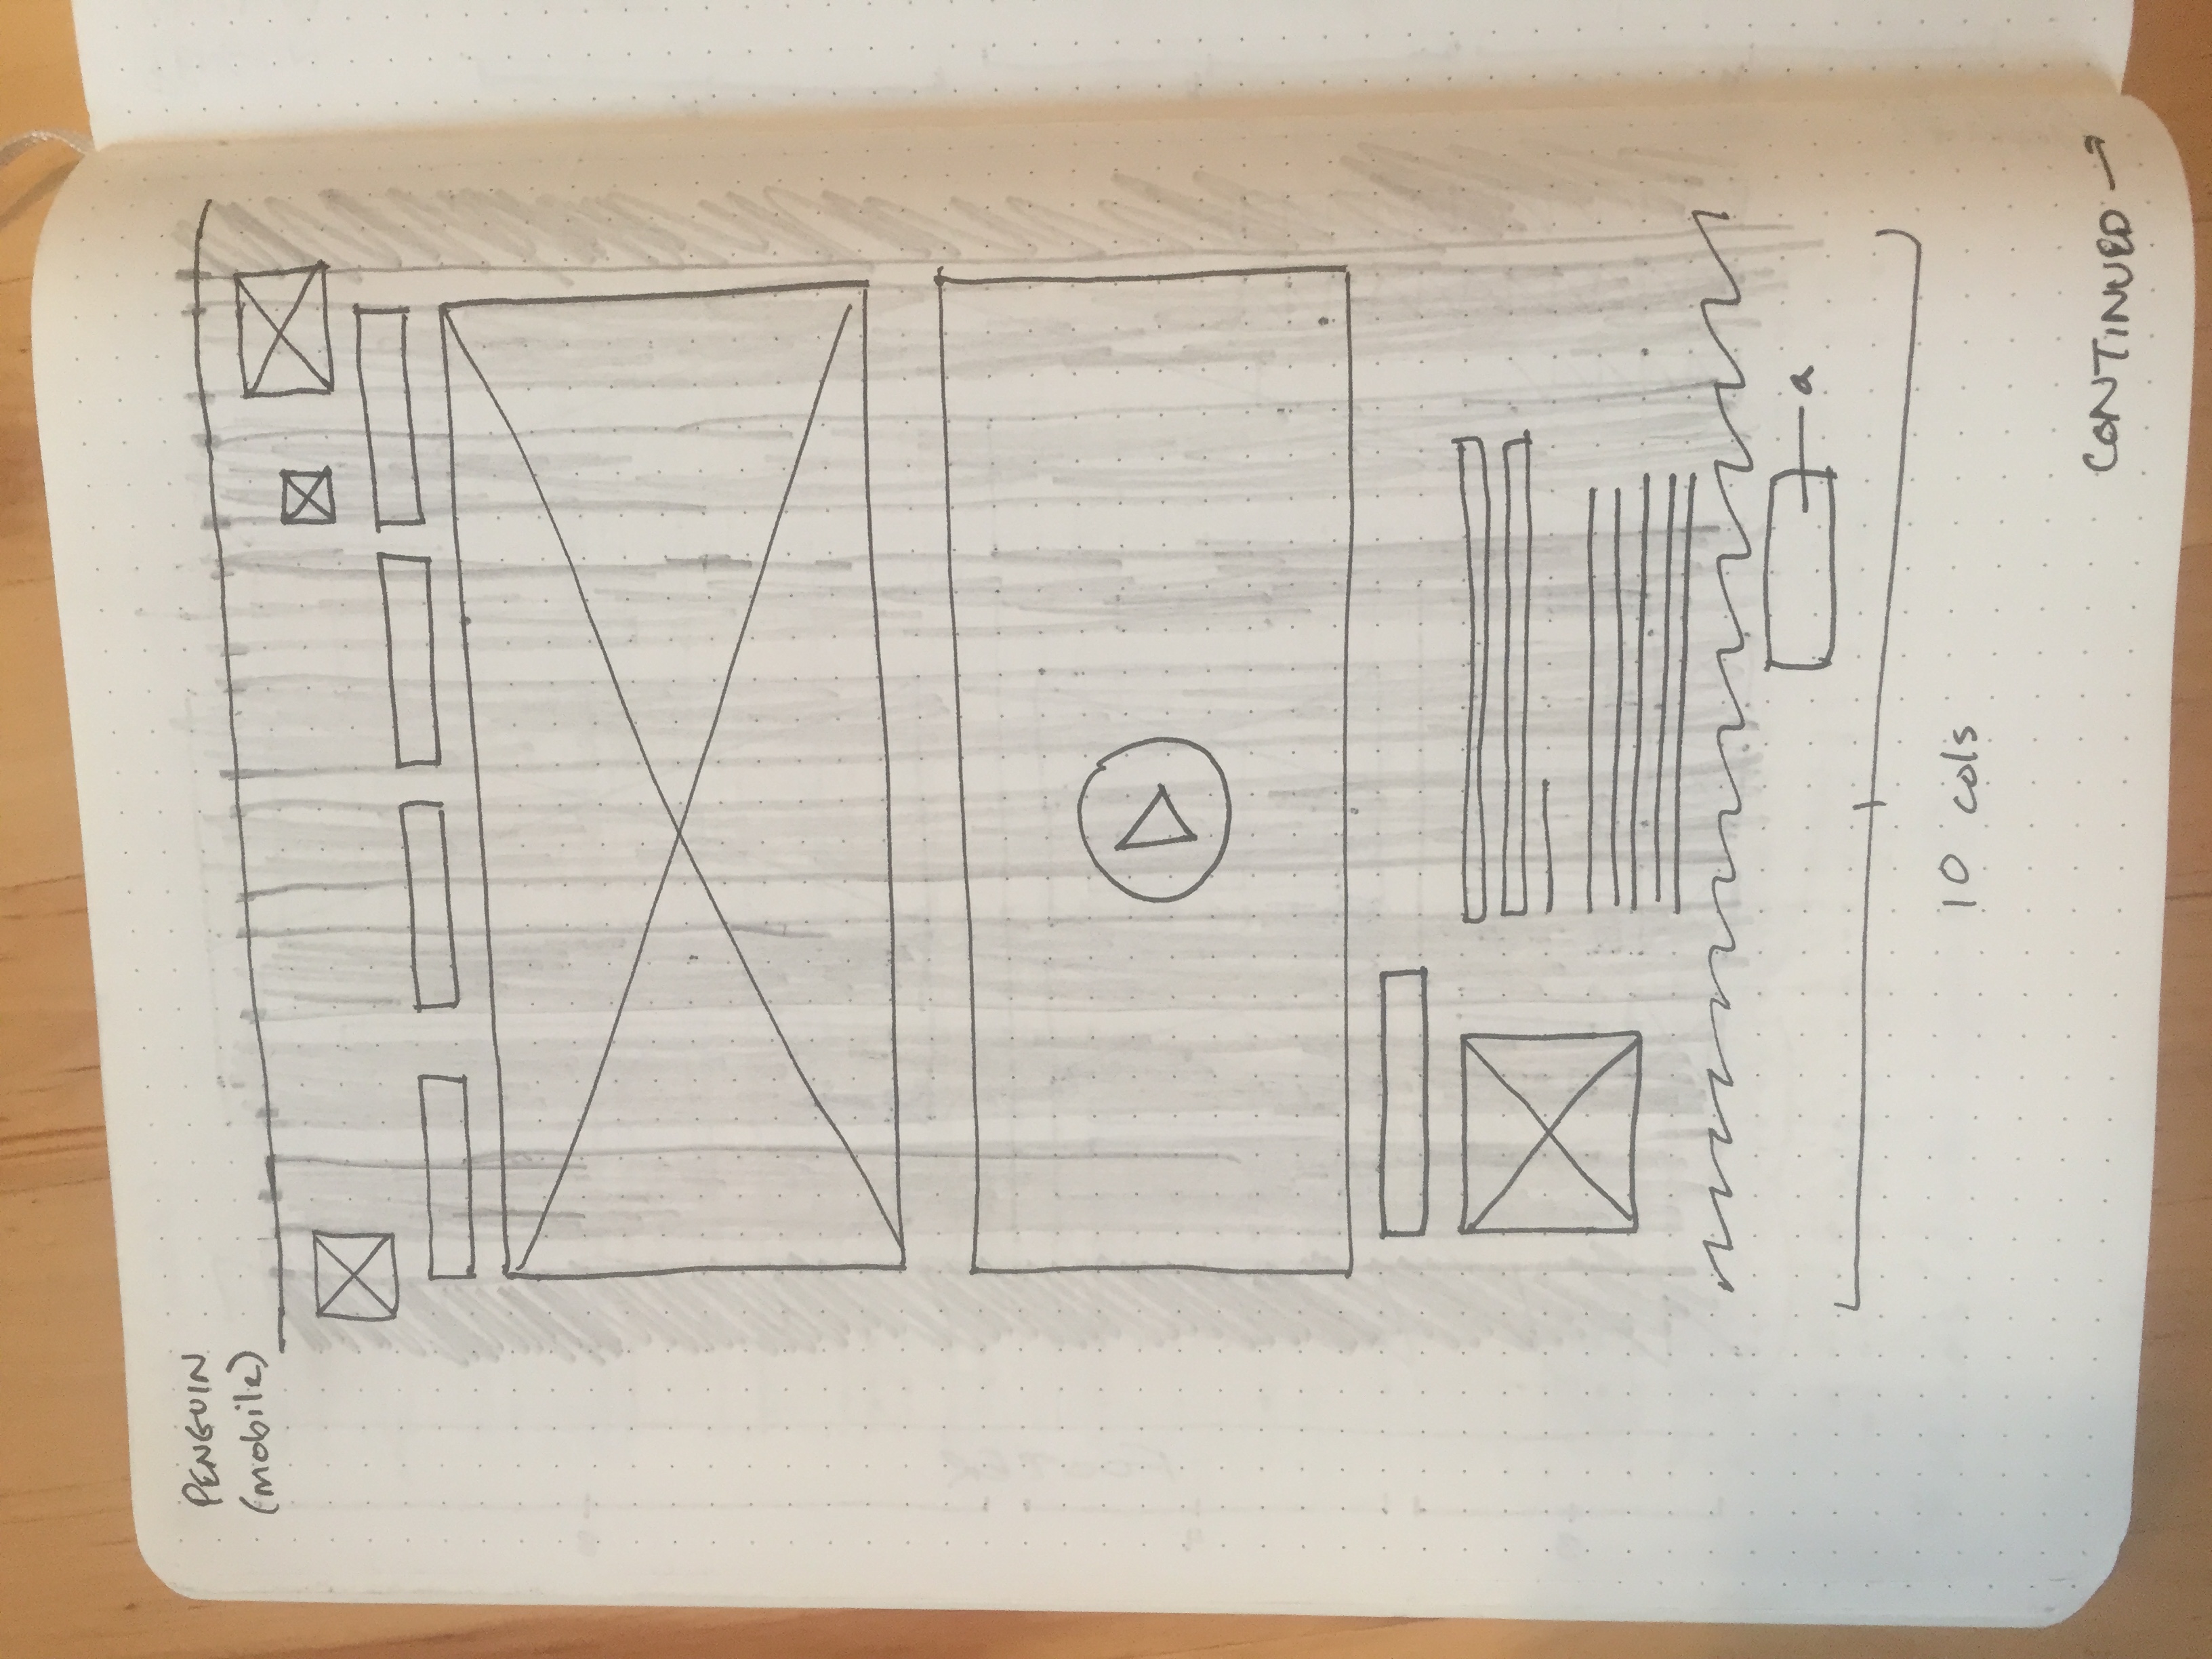 PENGUIN
(mobile)
a
10 cols
CONTINUED →